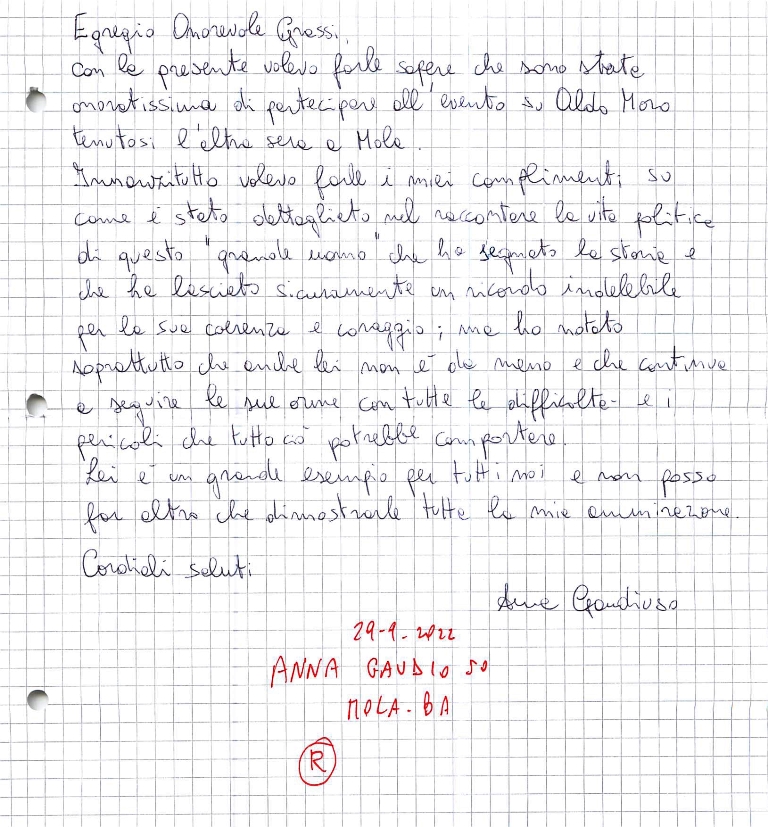 Egregio Onorevole Grassi,
con la presente volevo farle sapere che sono stata
onoratissima di partecipare all'evento su Aldo Moro
tenutosi l'altra sera a Mola.
Innanzitutto volevo farle i miei complimenti su
come è stato dettagliato nel raccontare la vita politica
di questo "grande uomo" che ha segnato la storia e
che ha lasciato sicuramente un ricordo indelebile
per la sua coerenza e coraggio; ma ho notato
soprattutto che anche lei non è da meno e che continua
a seguire le sue orme con tutte le difficoltà e i
pericoli che tutto ciò potrebbe comportare.
Lei è un grande esempio per tutti noi e non posso
far altro che dimostrarle tutta la mia ammirazione.
Cordiali saluti
Anna Gaudiuso
29-9-2022
ANNA GAUDIOSO
MOLA-BA
R